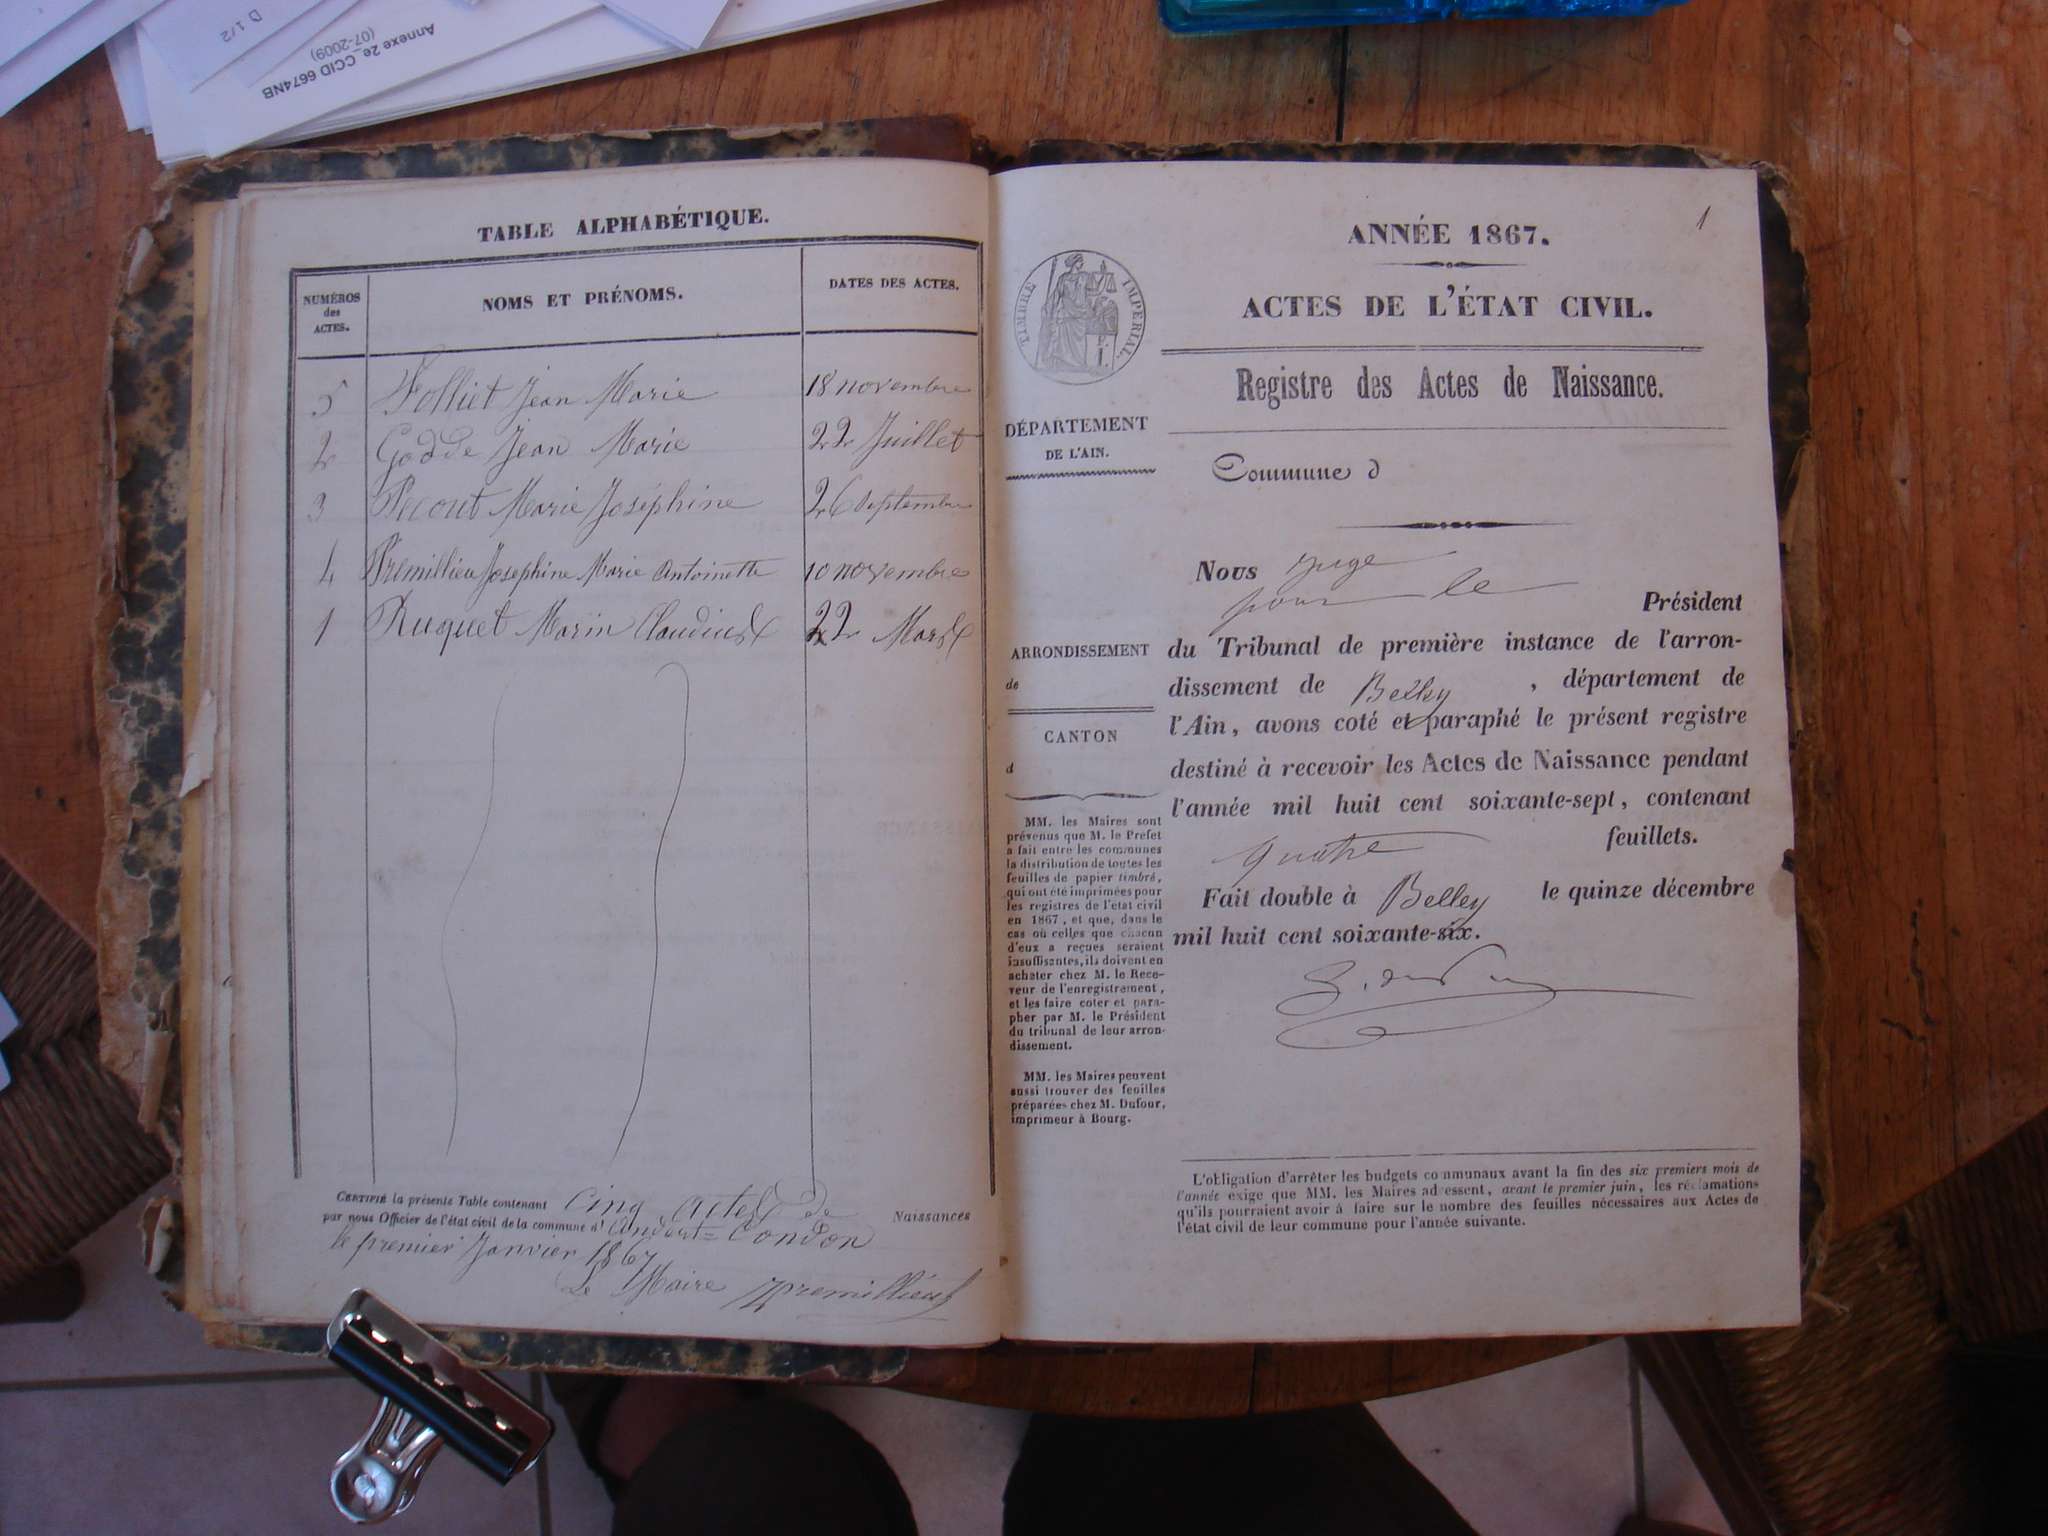 D 1/2
Annexe 2e_CCID 6674NB
(07-2009)
TABLE ALPHABÉTIQUE.
NUMÉROS
des
ACTES.
NOMS ET PRÉNOMS.
DATES DES ACTES.
5 Folliet Jean Marie 18 novembre
2 Godde Jean Marie 22 Juillet
3 Pecout Marie Joséphine 26 Septembre
4 Prémillieu Josephine Marie Antoinette 10 novembre
1 Ruquet Marin Claudius 22 Mars
CERTIFIÉ la présente Table contenant cinq actes de
par nous Officier de l'état civil de la commune d' Andert=Condon Naissances
le premier Janvier 1867
Le Maire Premillieu
1
ANNÉE 1867.
ACTES DE L'ÉTAT CIVIL.
Registre des Actes de Naissance.
TIMBRE IMPERIAL
DÉPARTEMENT
DE L'AIN.
Commune d
Nous juge
pour le Président
du Tribunal de première instance de l'arron-
dissement de Belley, département de
l'Ain, avons coté et paraphé le présent registre
destiné à recevoir les Actes de Naissance pendant
l'année mil huit cent soixante-sept, contenant
quatre feuillets.
Fait double à Belley le quinze décembre
mil huit cent soixante-six.
ARRONDISSEMENT
de
CANTON
d
MM. les Maires sont
prévenus que M. le Préfet
a fait entre les communes
la distribution de toutes les
feuilles de papier timbré,
qui ont été imprimées pour
les registres de l'état civil
en 1867, et que, dans le
cas où celles que chacun
d'eux a reçues seraient
insuffisantes, ils doivent en
acheter chez M. le Rece-
veur de l'enregistrement,
et les faire coter et para-
pher par M. le Président
du tribunal de leur arron-
dissement.
MM. les Maires peuvent
aussi trouver des feuilles
préparées chez M. Dufour,
imprimeur à Bourg.
L'obligation d'arrêter les budgets communaux avant la fin des six premiers mois de
l'année exige que MM. les Maires adressent, avant le premier juin, les réclamations
qu'ils pourraient avoir à faire sur le nombre des feuilles nécessaires aux Actes de
l'état civil de leur commune pour l'année suivante.